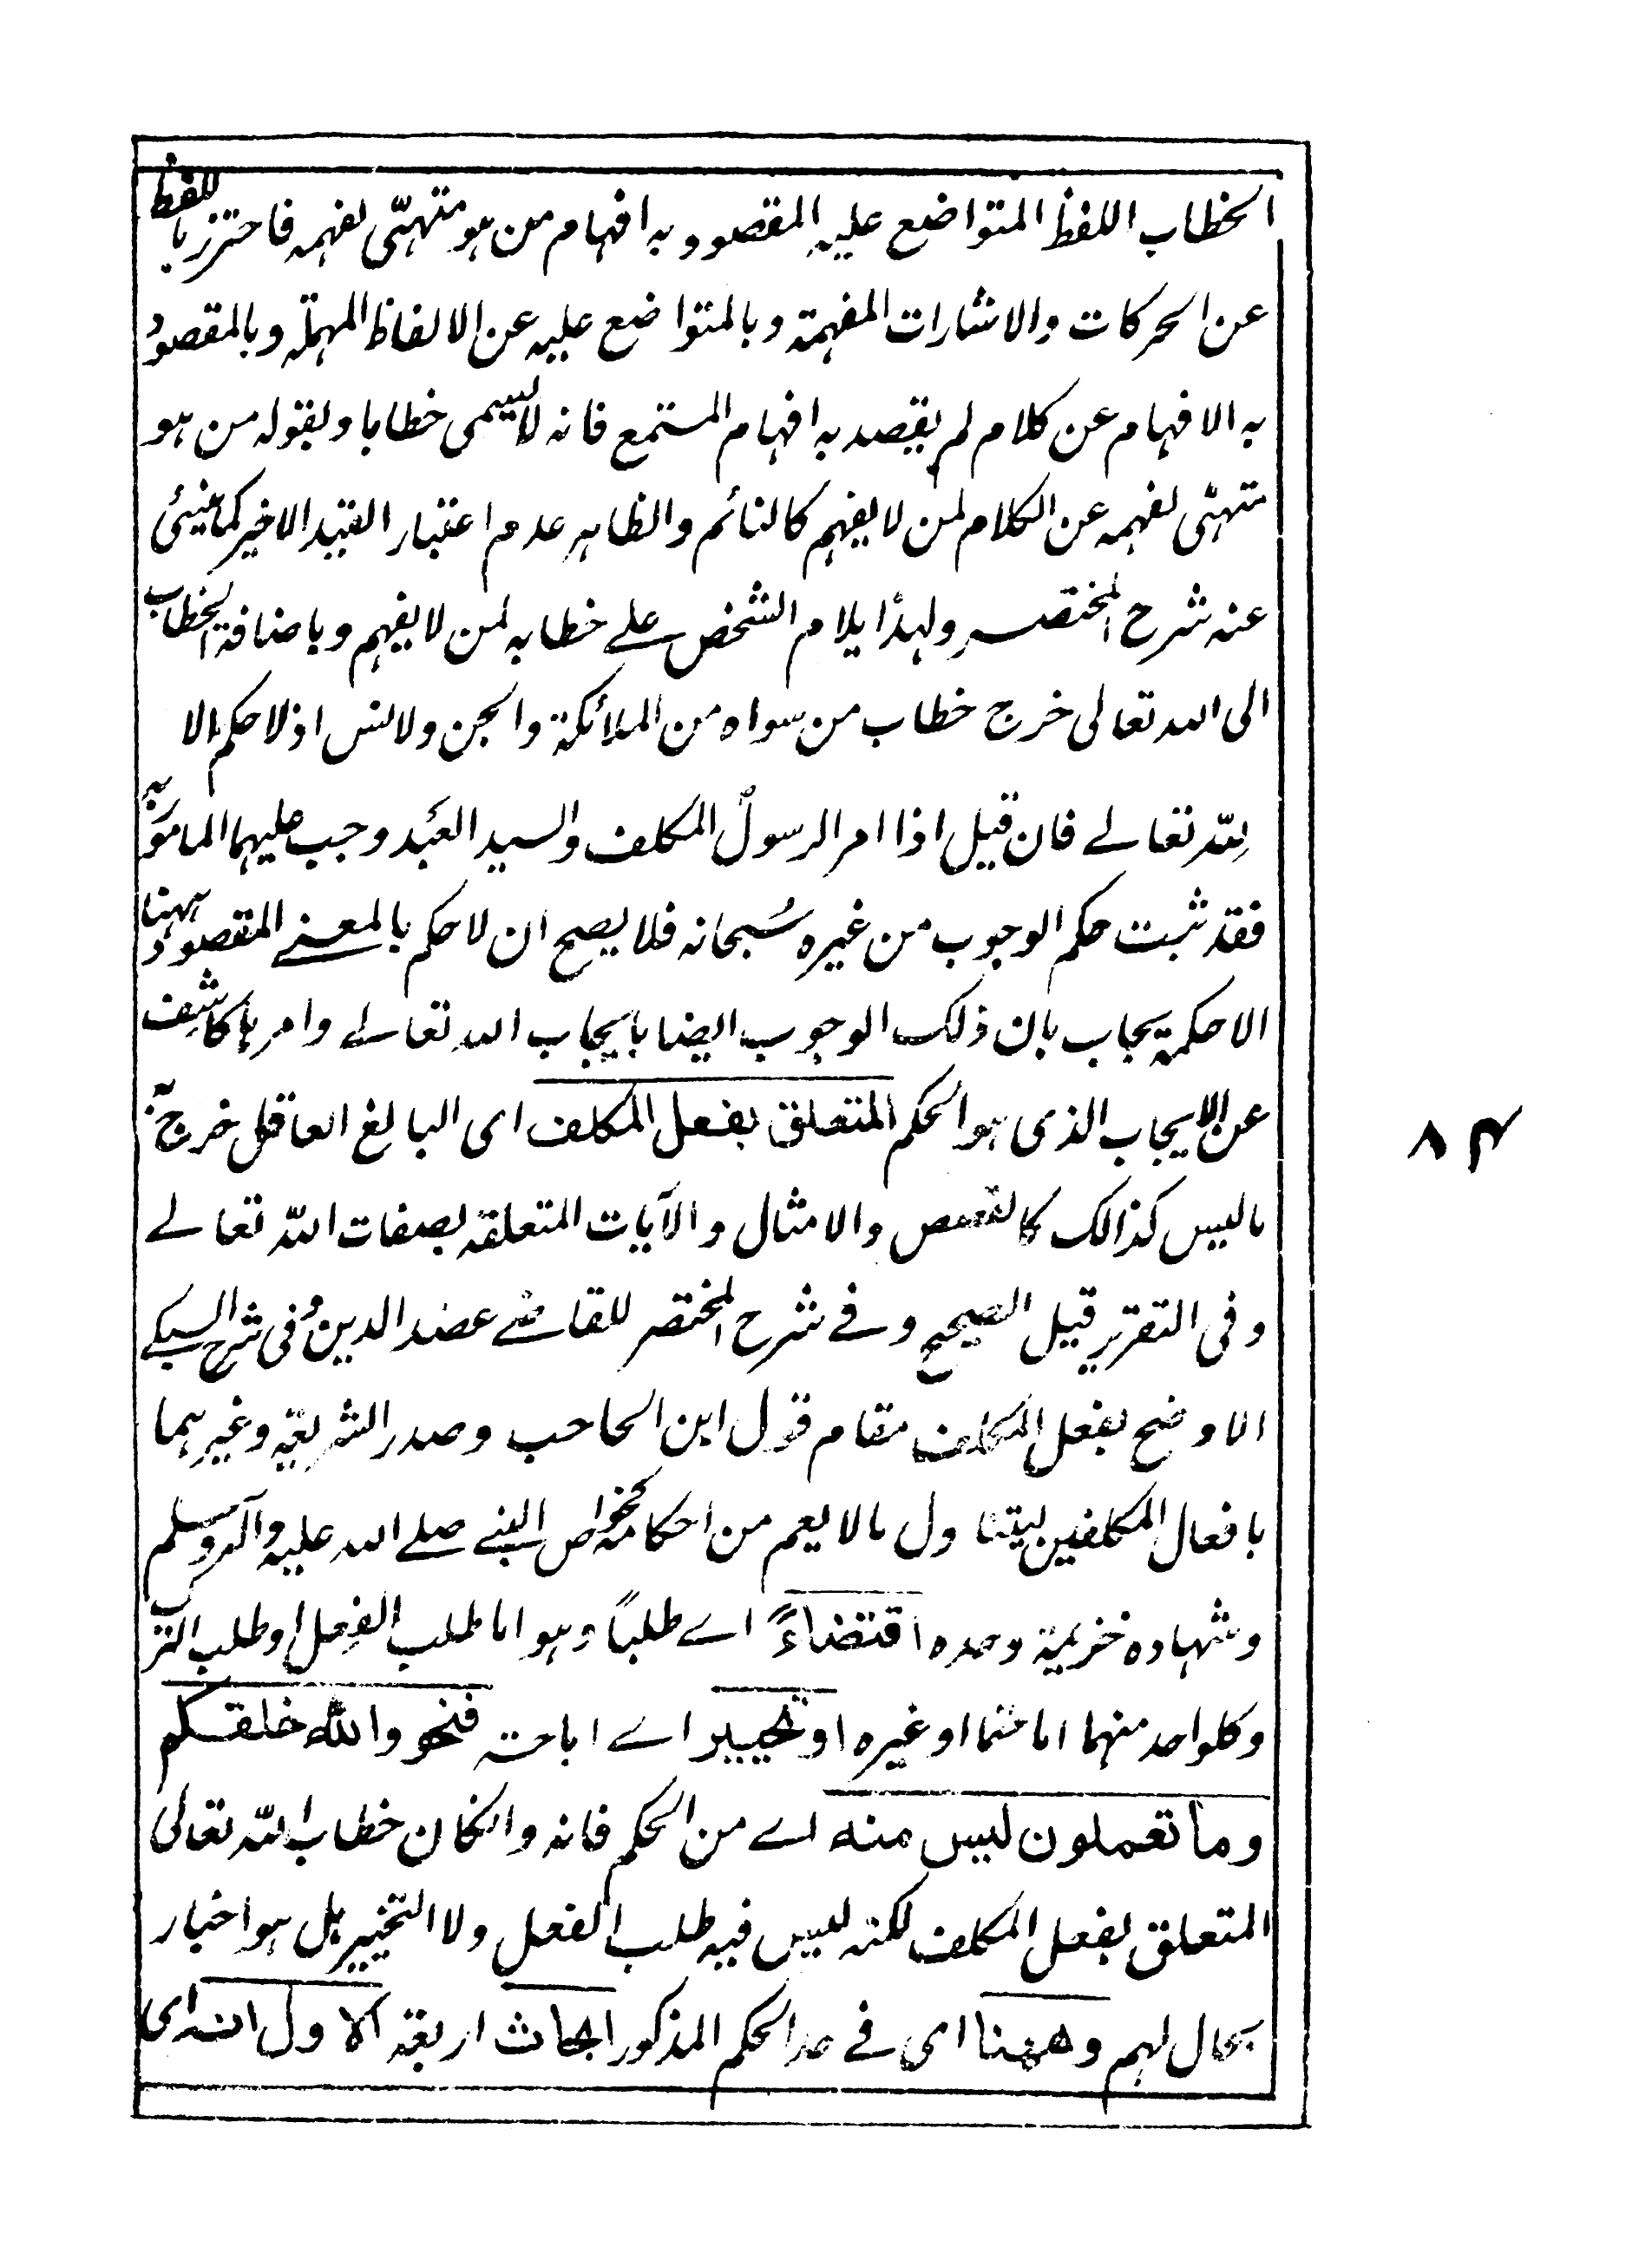 الخطاب اللفظ المتواضع عليه المقصود به افهام من هو متهيئ لفهمه فاحترز باللفظ
عن الحركات والاشارات المفهمة وبالمتواضع عليه عن الالفاظ المهملة وبالمقصود
به الافهام عن كلام لم يقصد به افهام المستمع فانه لا يسمى خطابا وبقوله من هو
متهيئ لفهمه عن الكلام لمن لا يفهم كالنائم والظاهر عدم اعتبار القيد الاخير كما ينبئ
عنه شرح المختصر ولهذا يلام الشخص على خطابه لمن لا يفهم وباضافة الخطاب
الى الله تعالى خرج خطاب من سواه من الملائكة والجن ولانس اذ لا حكم الا
لله تعالى فان قيل اذا امر الرسول المكلف والسيد العبد وجب عليهما المامور به
فقد ثبت حكم الوجوب من غيره سبحانه فلا يصح ان لا حكم بالمعنى المقصود ههنا
الا حكمه يجاب بان ذلك الوجوب ايضا بايجاب الله تعالى وامرها كاشف
عن الايجاب الذى هو الحكم المتعلق بفعل المكلف اى البالغ العاقل خرج به
ماليس كذالك كالقصص والامثال والآيات المتعلقة بصفات الله تعالى
وفى التقرير قيل الصحيح وفى شرح المختصر للقاضى عضد الدين وفى شرح السبكى
الاوضح بفعل المكلف مقام قول ابن الحاجب وصدر الشريعة وغيرهما
بافعال المكلفين ليتناول مالا يعم من احكامه كخواص النبى صلى الله عليه وآله وسلم
وشهاده خزيمة وحده اقتضاءً اى طلباً وهو اما طلب الفعل او طلب الترك
وكلواحد منهما اما حتما او غيره او تخيير اى اباحته فنحو والله خلقكم
وما تعملون ليس منه اى من الحكم فانه وانكان خطاب الله تعالى
المتعلق بفعل المكلف لكنه ليس فيه طلب الفعل ولا التخيير بل هو اخبار
بحال لهم وههنا اى فى حد الحكم المذكور ابحاث اربعة الاول انه اى
٨٤